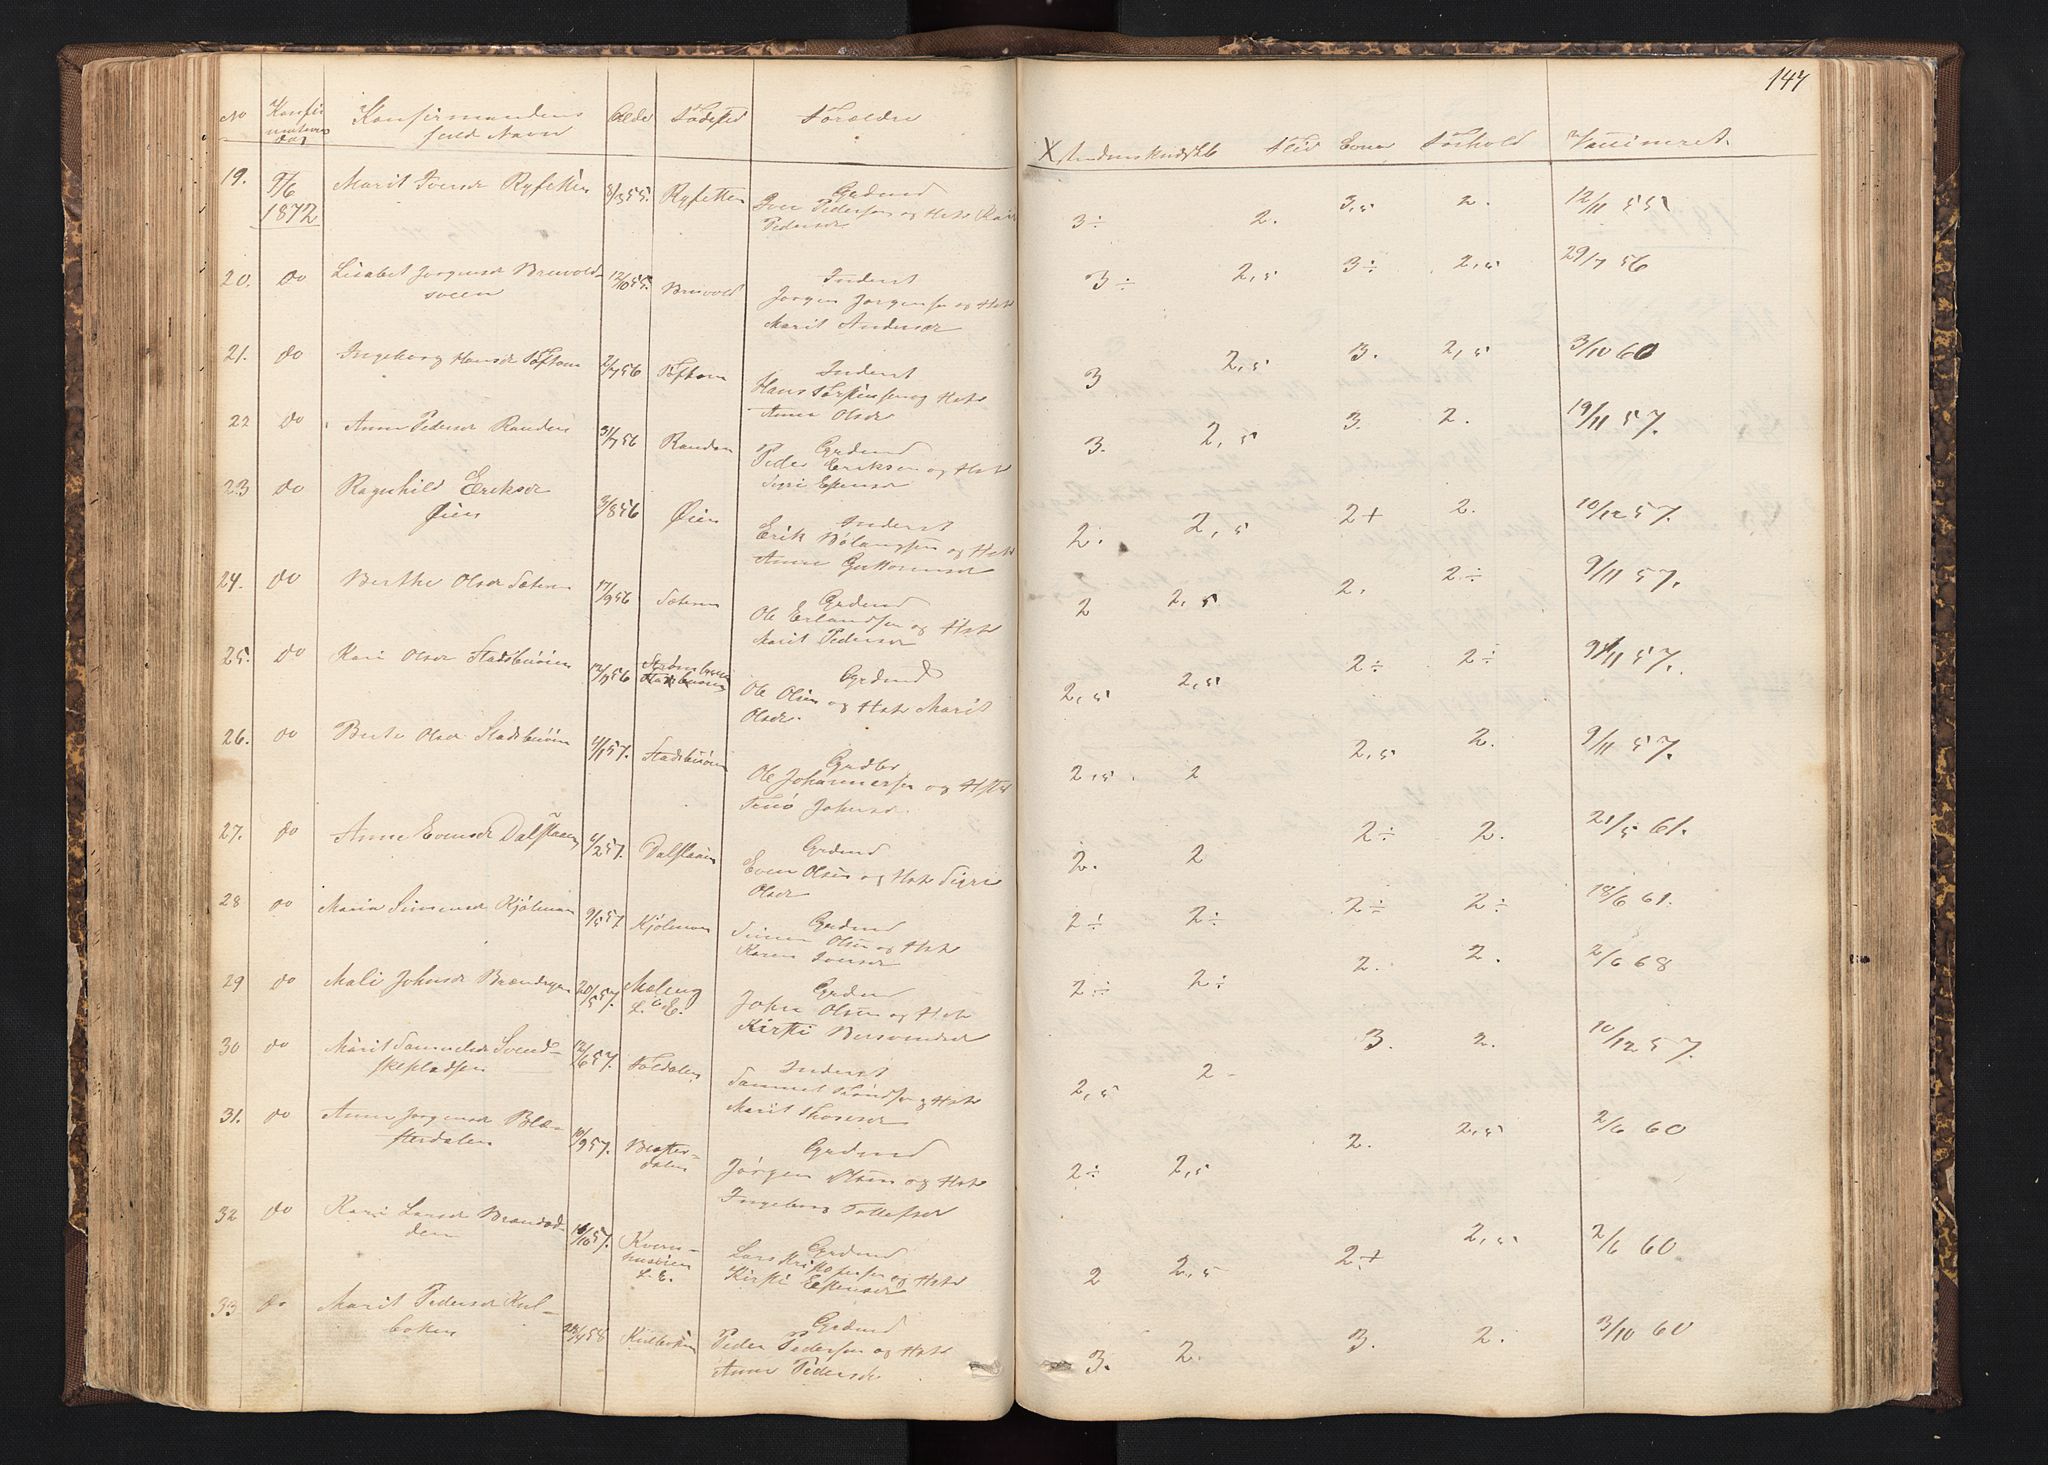 147
No Konfirmations Dag Konfirmandens fuld Navn Alder Födested Forældre Kundskab Flid Evner Forhold Vaccineret.
19. 9/6 1872 Marit Iversdr Ryfetten 8/3 55. Ryfetten Grdmd
Iver Pedersen og Hst Kari
Pedersdr 3÷ 2. 3,5 2. 12/11 55
20. do Lisabet Jorgensdr Breivold-
sveen 12/10 55. Breivold Inderst
Jorgen Jorgensen og Hst
Marit Andersdr 3÷ 2,5 3÷ 2,5 29/7 56
21. do Ingeborg Hansdr Toftom 2/7 56 Toftom Inderst
Hans og Hst
Anne Olsdr 3 2,5 3. 2,5 3/10 60
22 do Anne Pedersdr Randen 31/7 56 Randen Grdmd
Peder Eriksen og Hst
Sigri Espensdr 3. 2,5 3. 2. 19/11 57.
23 do Ragnhild Eriksdr
Øien 3/8 56 Øien Inderst
Erik og Hst
Anne Guttormsdr 2. 2,5 2+ 2. 10/12 57.
24. do Berthe Olsdr Sæteren 17/9 56 Sæteren Grdmd
Ole Erlandsen og Hst
Marit Pedersdr 2 2,5 2. 2÷ 9/11 57.
25. do Kari Olsdr Stadsbuöien Strömbuöien
Stadsbuöien Grdmd
Ole Olsen og Hst Marit
Olsdr. 2,5 2,5 2÷ 2÷ 9/11 57.
26. do Berte Olsdr Stadsbuöien 57. Stadsbuöien Grdbr
Ole Johannessen og Hst
Johnsdr. 2,5 2 2,5 2. 9/11 57.
27. do Anne Evensdr Dalslaaen 6/2 57. Dalslaaen Grdmd
Even Olsen og Hst Sigri
Olsdr 2. 2 2÷ 2. 21/5 61.
28 do Maria Simensdr Kjölmoen 9/5 57. Kjölmoen Grdmd
Simen Olsen og Hst
Karen Iversdr 2÷ 2÷ 2÷ 2÷ 18/6 61.
29 do Mali Johnsdr Brændvgen 20/5 57. Mæleng
L. E. Grdmd
John Olsen og Hst
Kirsti Bersvendsdr 2÷ 2÷ 2. 2. 2/6 68
30 do Marit Samuelsdr Svend-
skepladsen 12/6 57. Foldalen Inderst
Samuel og Hst
Marit Thoresdr 2,5 2- 3. 2. 10/12 57.
31. do Anne Jorgensdr Blæ-
sterdalen 10/9 57. Blæster-
dalen Grdmd
Jörgen Olsen og Hst
Ingeborg Tollefsdr 2÷ 2,5 2. 2,5 2/6 60
32 do Kari Larsdr Brandod-
den 10/10 57. Kvern-
husöien
L. E. Grdmd
Lars Kristofersen og Hst
Kirsti Espensdr 2 2,5 2+ 2,5 2/6 60
33 do Marit Pedersdr Kul-
boken 23/4 58 Kulboken Grdmd
Peder Pedersen og Hst
Anne Pedersdr 3. 2. 3. 2. 3/10 60